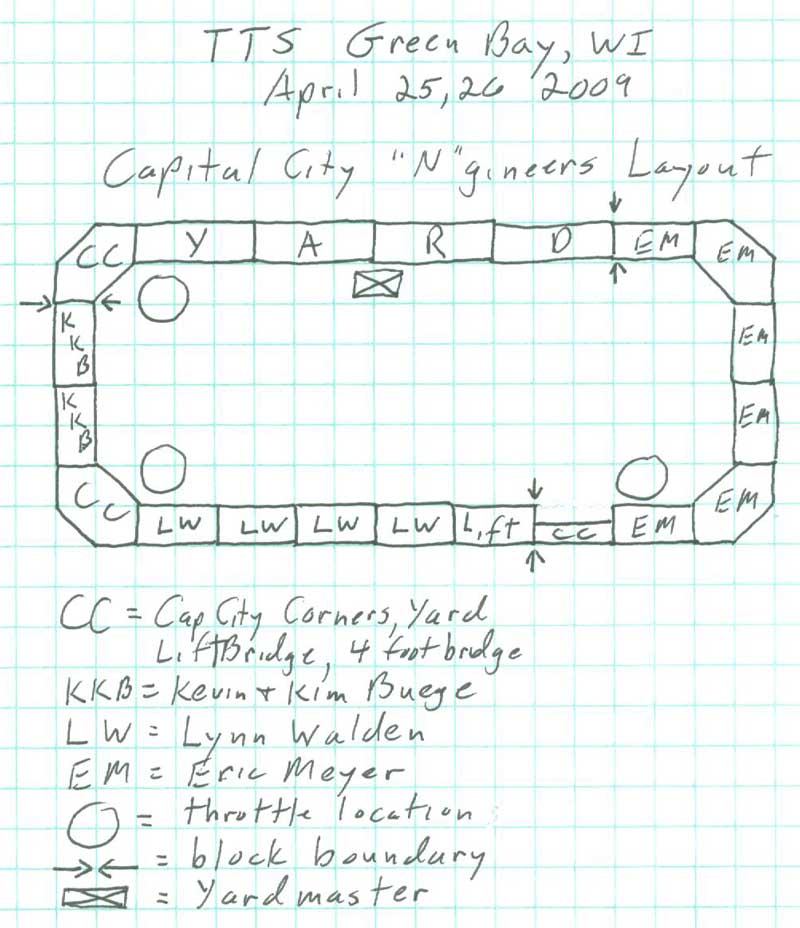 TTS Green Bay, WI
April 25,26 2009
Capital City "N"gineers Layout
CC Y A R D EM EM
KKB EM
KKB EM
CC LW LW LW LW Lift CC EM EM
CC = Cap City Corners, Yard
LiftBridge, 4 foot bridge
KKB = Kevin + Kim Buege
LW = Lynn Walden
EM = Eric Meyer
= throttle location
= block boundary
= Yardmaster